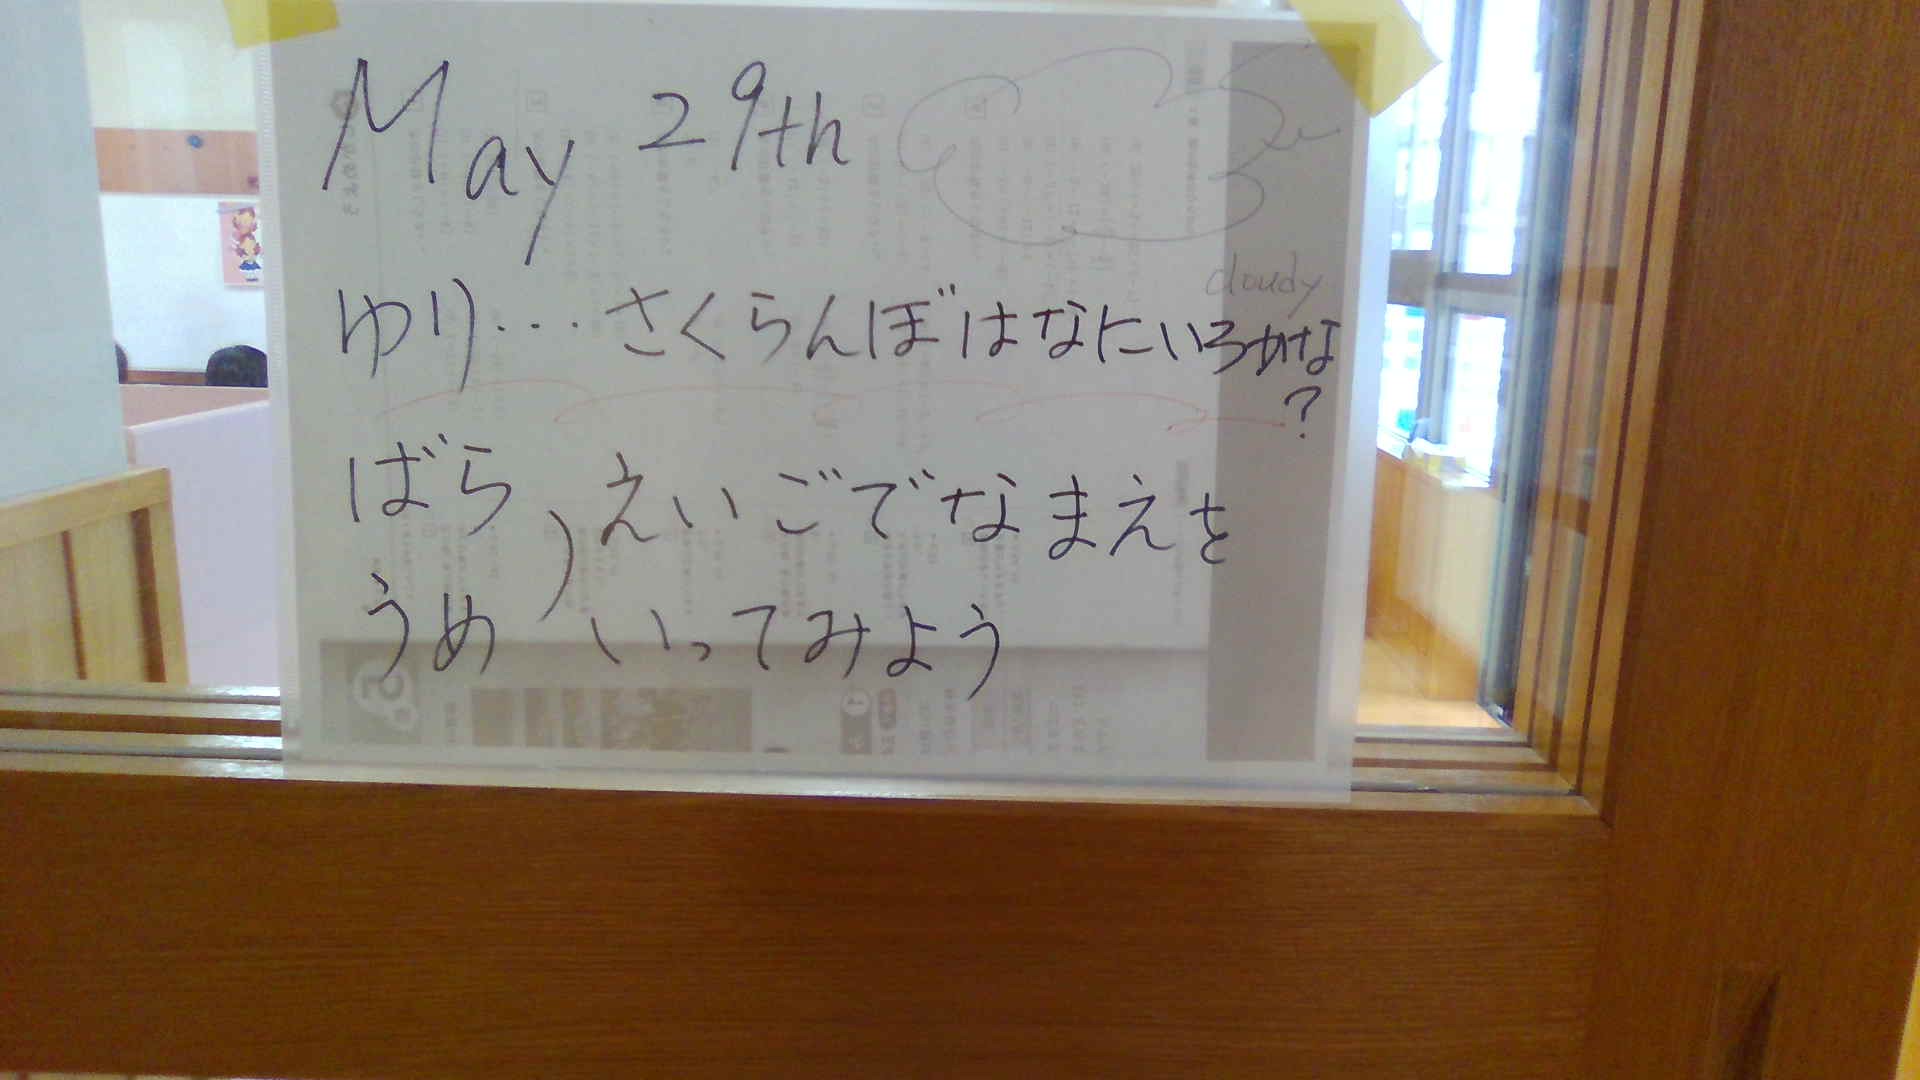 May 29th
cloudy
ゆり…さくらんぼはなにいろかな
?
ばら
うめ
) えいごでなまえを
いってみよう